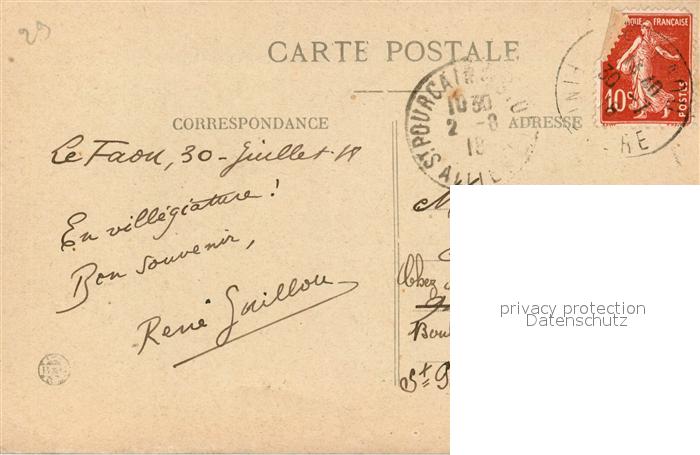 29
CARTE POSTALE
CORRESPONDANCE
ADRESSE
Le Faou, 30 - Juillet 18
En villégiature !
Bon souvenir,
René Guillou
ST POURCAIN
ALLIER
10 30
2 - 8
18
FRANÇAISE
10c
POSTES
FIN
RE
M
Chez
Bou
St P
privacy protection
Datenschutz